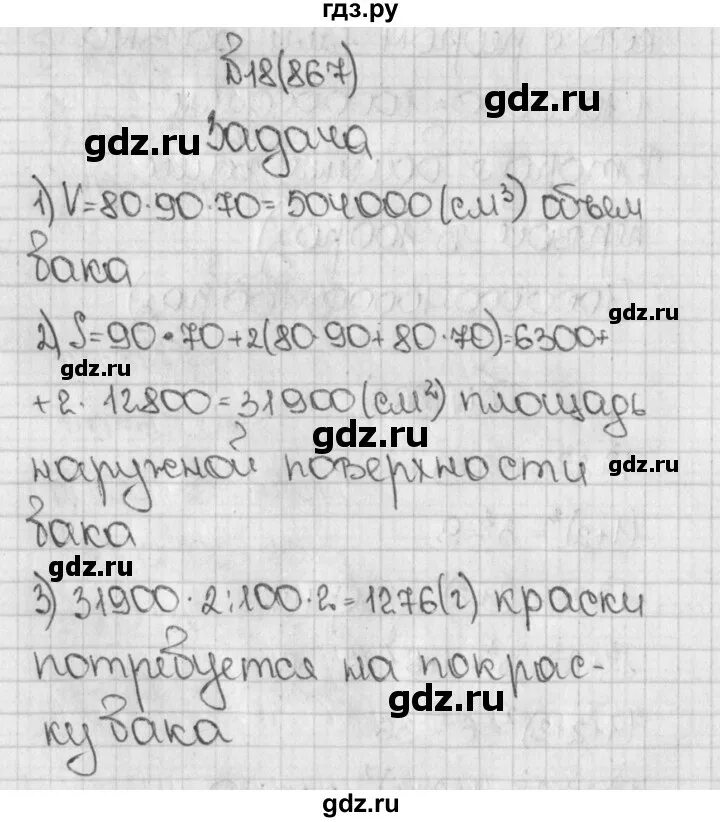 гдз.ру
В18(867)
gdz.ru
gdz.ru
Задача
1) V=80·90·70=504000(см³) объем
бака
gdz.ru
2) S=90·70+2(80·90+80·70)=6300+
gdz.ru
+2·12800=31900(см²) площадь
gdz.ru
gdz.ru
наружной поверхности
бака
gdz.ru
gdz.ru
3) 31900·2:100·2=1276(г) краски
потребуется на покрас-
gdz.ru
ку бака
gdz.ru